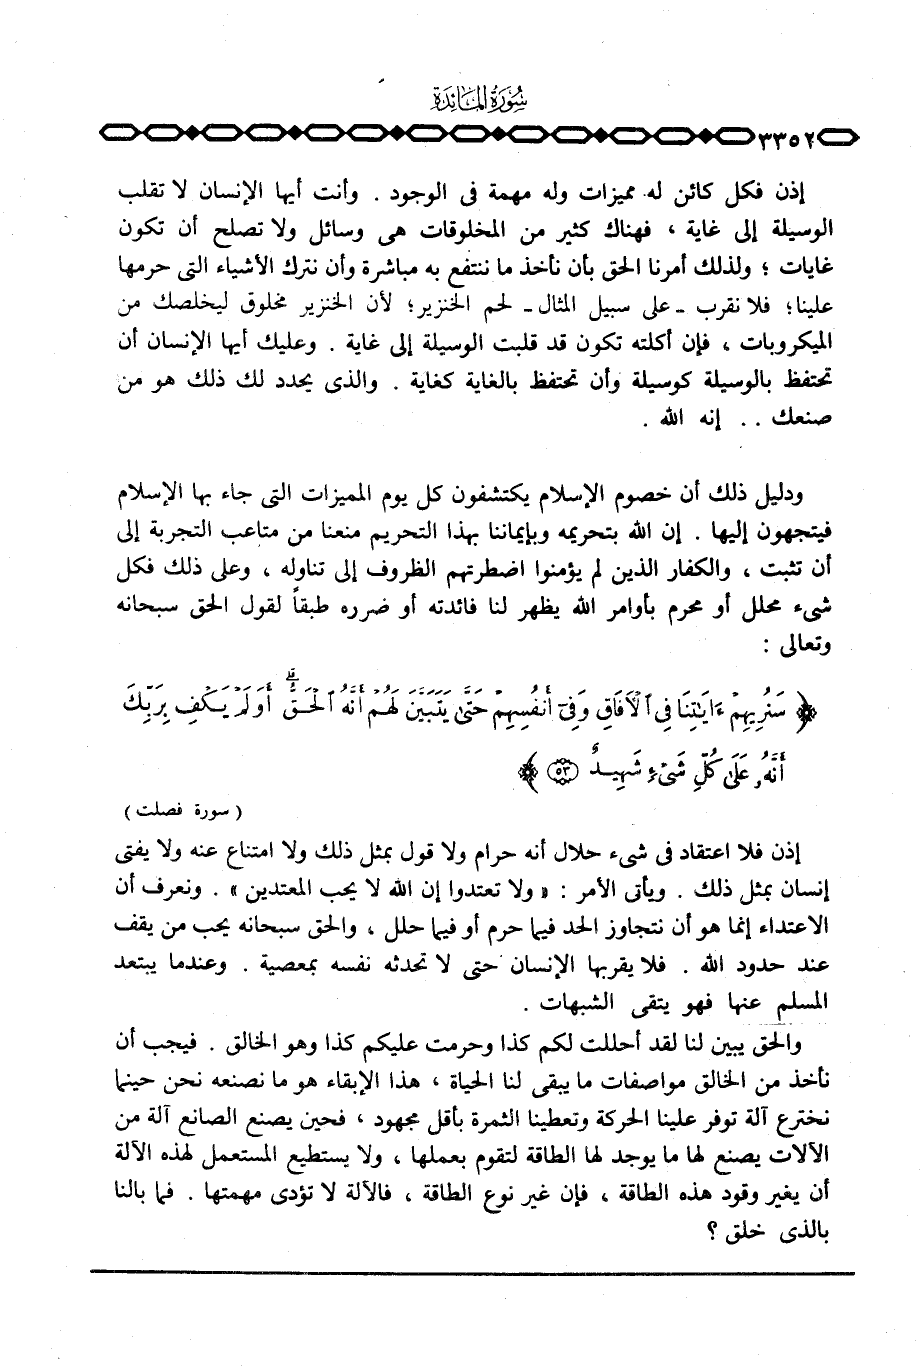 سورة المائدة
٣٣٥٢
إذن فكل كائن له مميزات وله مهمة فى الوجود . وأنت أيها الإنسان لا تقلب
الوسيلة إلى غاية ، فهناك كثير من المخلوقات هى وسائل ولا تصلح أن تكون
غايات ؛ ولذلك أمرنا الحق بأن نأخذ ما ننتفع به مباشرة وأن نترك الأشياء التى حرمها
علينا؛ فلا نقرب ـ على سبيل المثال ـ لحم الخنزير؛ لأن الخنزير مخلوق ليخلصك من
الميكروبات ، فإن أكلته تكون قد قلبت الوسيلة إلى غاية . وعليك أيها الإنسان أن
تحتفظ بالوسيلة كوسيلة وأن تحتفظ بالغاية كغاية . والذى يحدد لك ذلك هو من
صنعك . . إنه الله .
ودليل ذلك أن خصوم الإسلام يكتشفون كل يوم المميزات التى جاء بها الإسلام
فيتجهون إليها . إن الله بتحريمه وبإيماننا بهذا التحريم منعنا من متاعب التجربة إلى
أن تثبت ، والكفار الذين لم يؤمنوا اضطرتهم الظروف إلى تناوله ، وعلى ذلك فكل
شىء محلل أو محرم بأوامر الله يظهر لنا فائدته أو ضرره طبقاً لقول الحق سبحانه
وتعالى :
﴿ سَنُرِيهِمْ ءَايَـٰتِنَا فِى ٱلْأَفَاقِ وَفِىٓ أَنفُسِهِمْ حَتَّىٰ يَتَبَيَّنَ لَهُمْ أَنَّهُ ٱلْحَقُّ ۗ أَوَلَمْ يَكْفِ بِرَبِّكَ
أَنَّهُۥ عَلَىٰ كُلِّ شَىْءٍ شَهِيدٌ ٥٣ ﴾
( سورة فصلت )
إذن فلا اعتقاد فى شىء حلال أنه حرام ولا قول بمثل ذلك ولا امتناع عنه ولا يفتى
إنسان بمثل ذلك . ويأتى الأمر : « ولا تعتدوا إن الله لا يحب المعتدين » . ونعرف أن
الاعتداء إنما هو أن نتجاوز الحد فيما حرم أو فيما حلل ، والحق سبحانه يحب من يقف
عند حدود الله . فلا يقربها الإنسان حتى لا تحدثه نفسه بمعصية . وعندما يبتعد
المسلم عنها فهو يتقى الشبهات .
والحق يبين لنا لقد أحللت لكم كذا وحرمت عليكم كذا وهو الخالق . فيجب أن
نأخذ من الخالق مواصفات ما يبقى لنا الحياة ، هذا الإبقاء هو ما نصنعه نحن حينما
نخترع آلة توفر علينا الحركة وتعطينا الثمرة بأقل مجهود ، فحين يصنع الصانع آلة من
الآلات يصنع لها ما يوجد لها الطاقة لتقوم بعملها ، ولا يستطيع المستعمل لهذه الآلة
أن يغير وقود هذه الطاقة ، فإن غير نوع الطاقة ، فالآلة لا تؤدى مهمتها . فما بالنا
بالذى خلق ؟